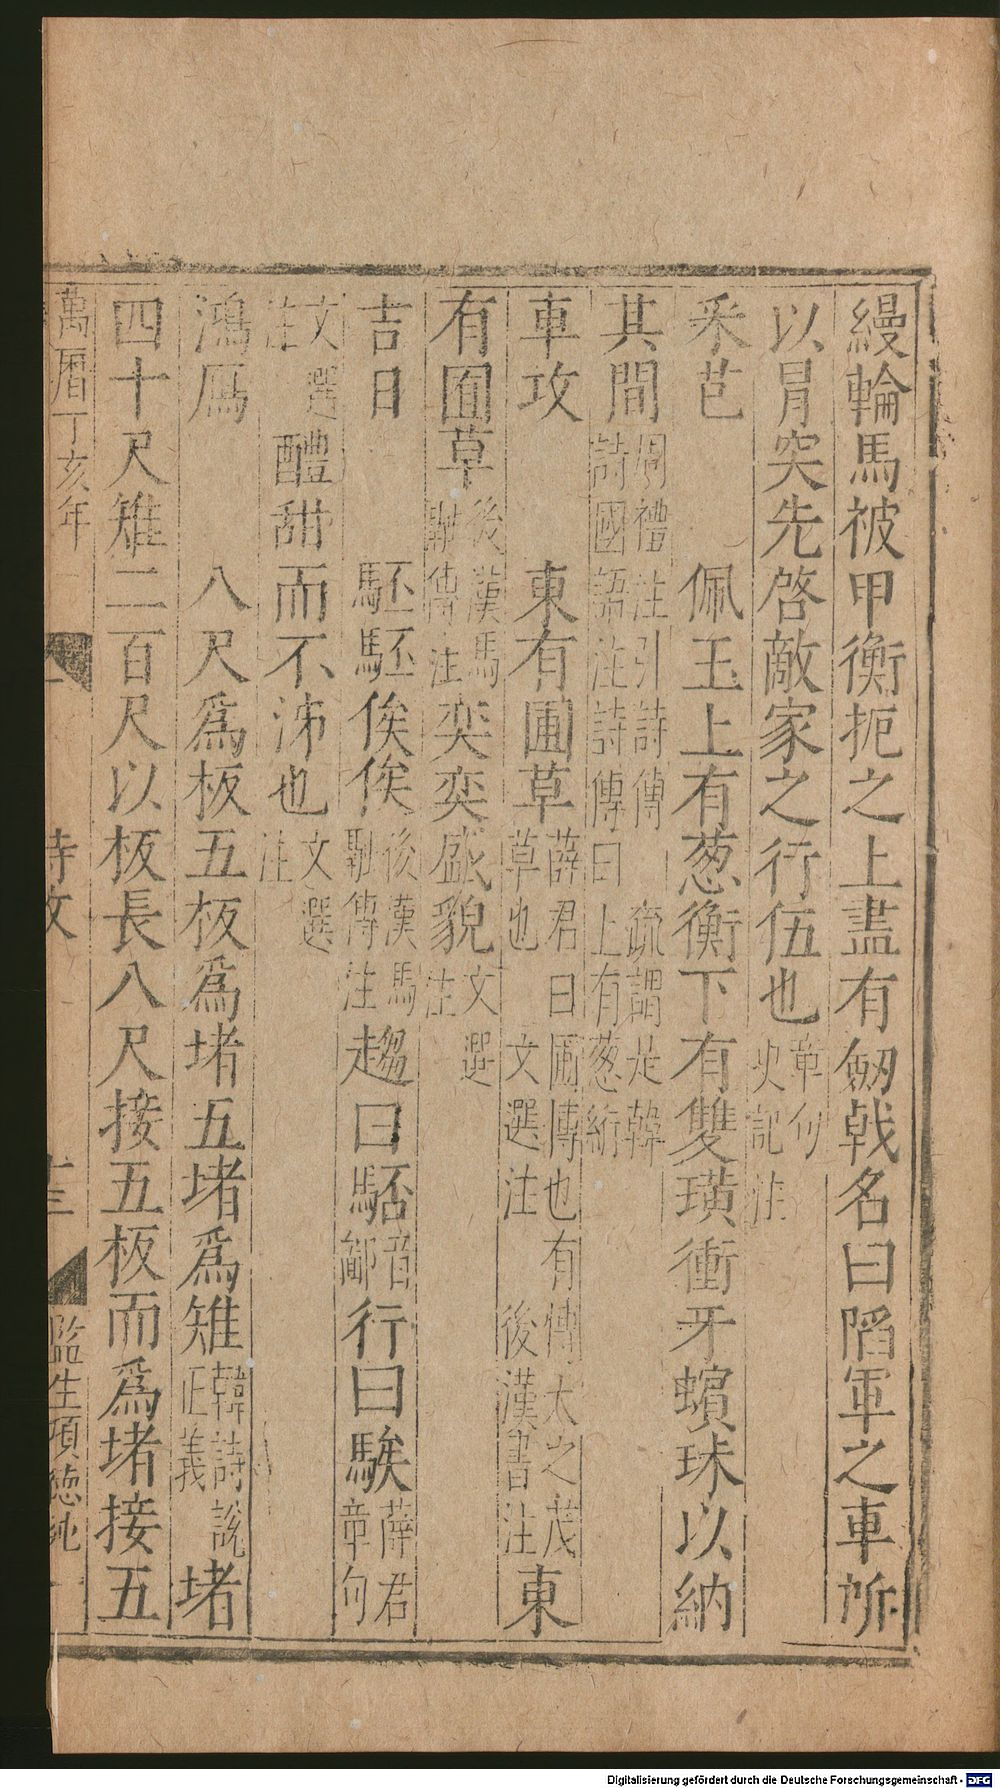 縵輪馬被甲衡扼之上盡有劒戟名曰陷軍之車所
以冒突先啓敵家之行伍也章句史記注
采芑 佩玉上有葱衡下有雙璜衝牙蠙珠以納
其間周禮注引詩傳 疏謂是韓詩國語注詩傳曰上有葱絎
車攻 東有圃草薛君曰圃博也有博大之茂草也 文選注 後漢書注東
有囿草後漢馬融傳注奕奕盛貌文選注
吉日 駓駓俟俟後漢馬融傳注趨曰駓音鄙行曰騃薛君章句
文選注 醴甜而不泲也文選注
鴻鴈 八尺爲板五板爲堵五堵爲雉韓詩說正義堵
四十尺雉二百尺以板長八尺接五板而爲堵接五
萬曆丁亥年
詩攷
十三
監生項德純
Digitalisierung gefördert durch die Deutsche Forschungsgemeinschaft - DFG